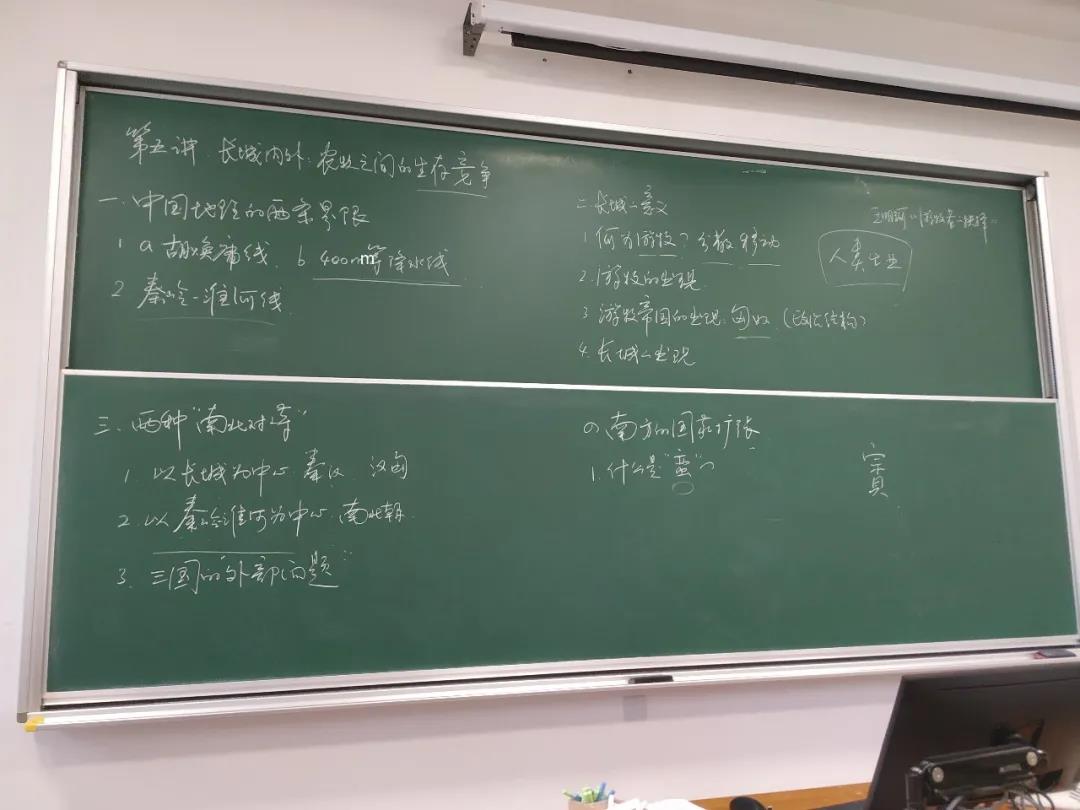 第五讲 长城内外:农牧之间的生存竞争
一、中国地理的两条界限
1 a 胡焕庸线、b 400m等降水线
2 秦岭-淮河线
二、长城的意义
1. 何为游牧？分散 移动
2. 游牧的出现
3. 游牧帝国的出现:匈奴（政治结构）
4. 长城的出现
王明珂《游牧者的抉择》
人类生业
三、两种"南北对峙"
1. 以长城为中心 秦汉 汉匈
2. 以秦岭淮河为中心 南北朝
3. 三国的"外部问题"
四 南方的国家扩张
1. 什么是"蛮"
賨